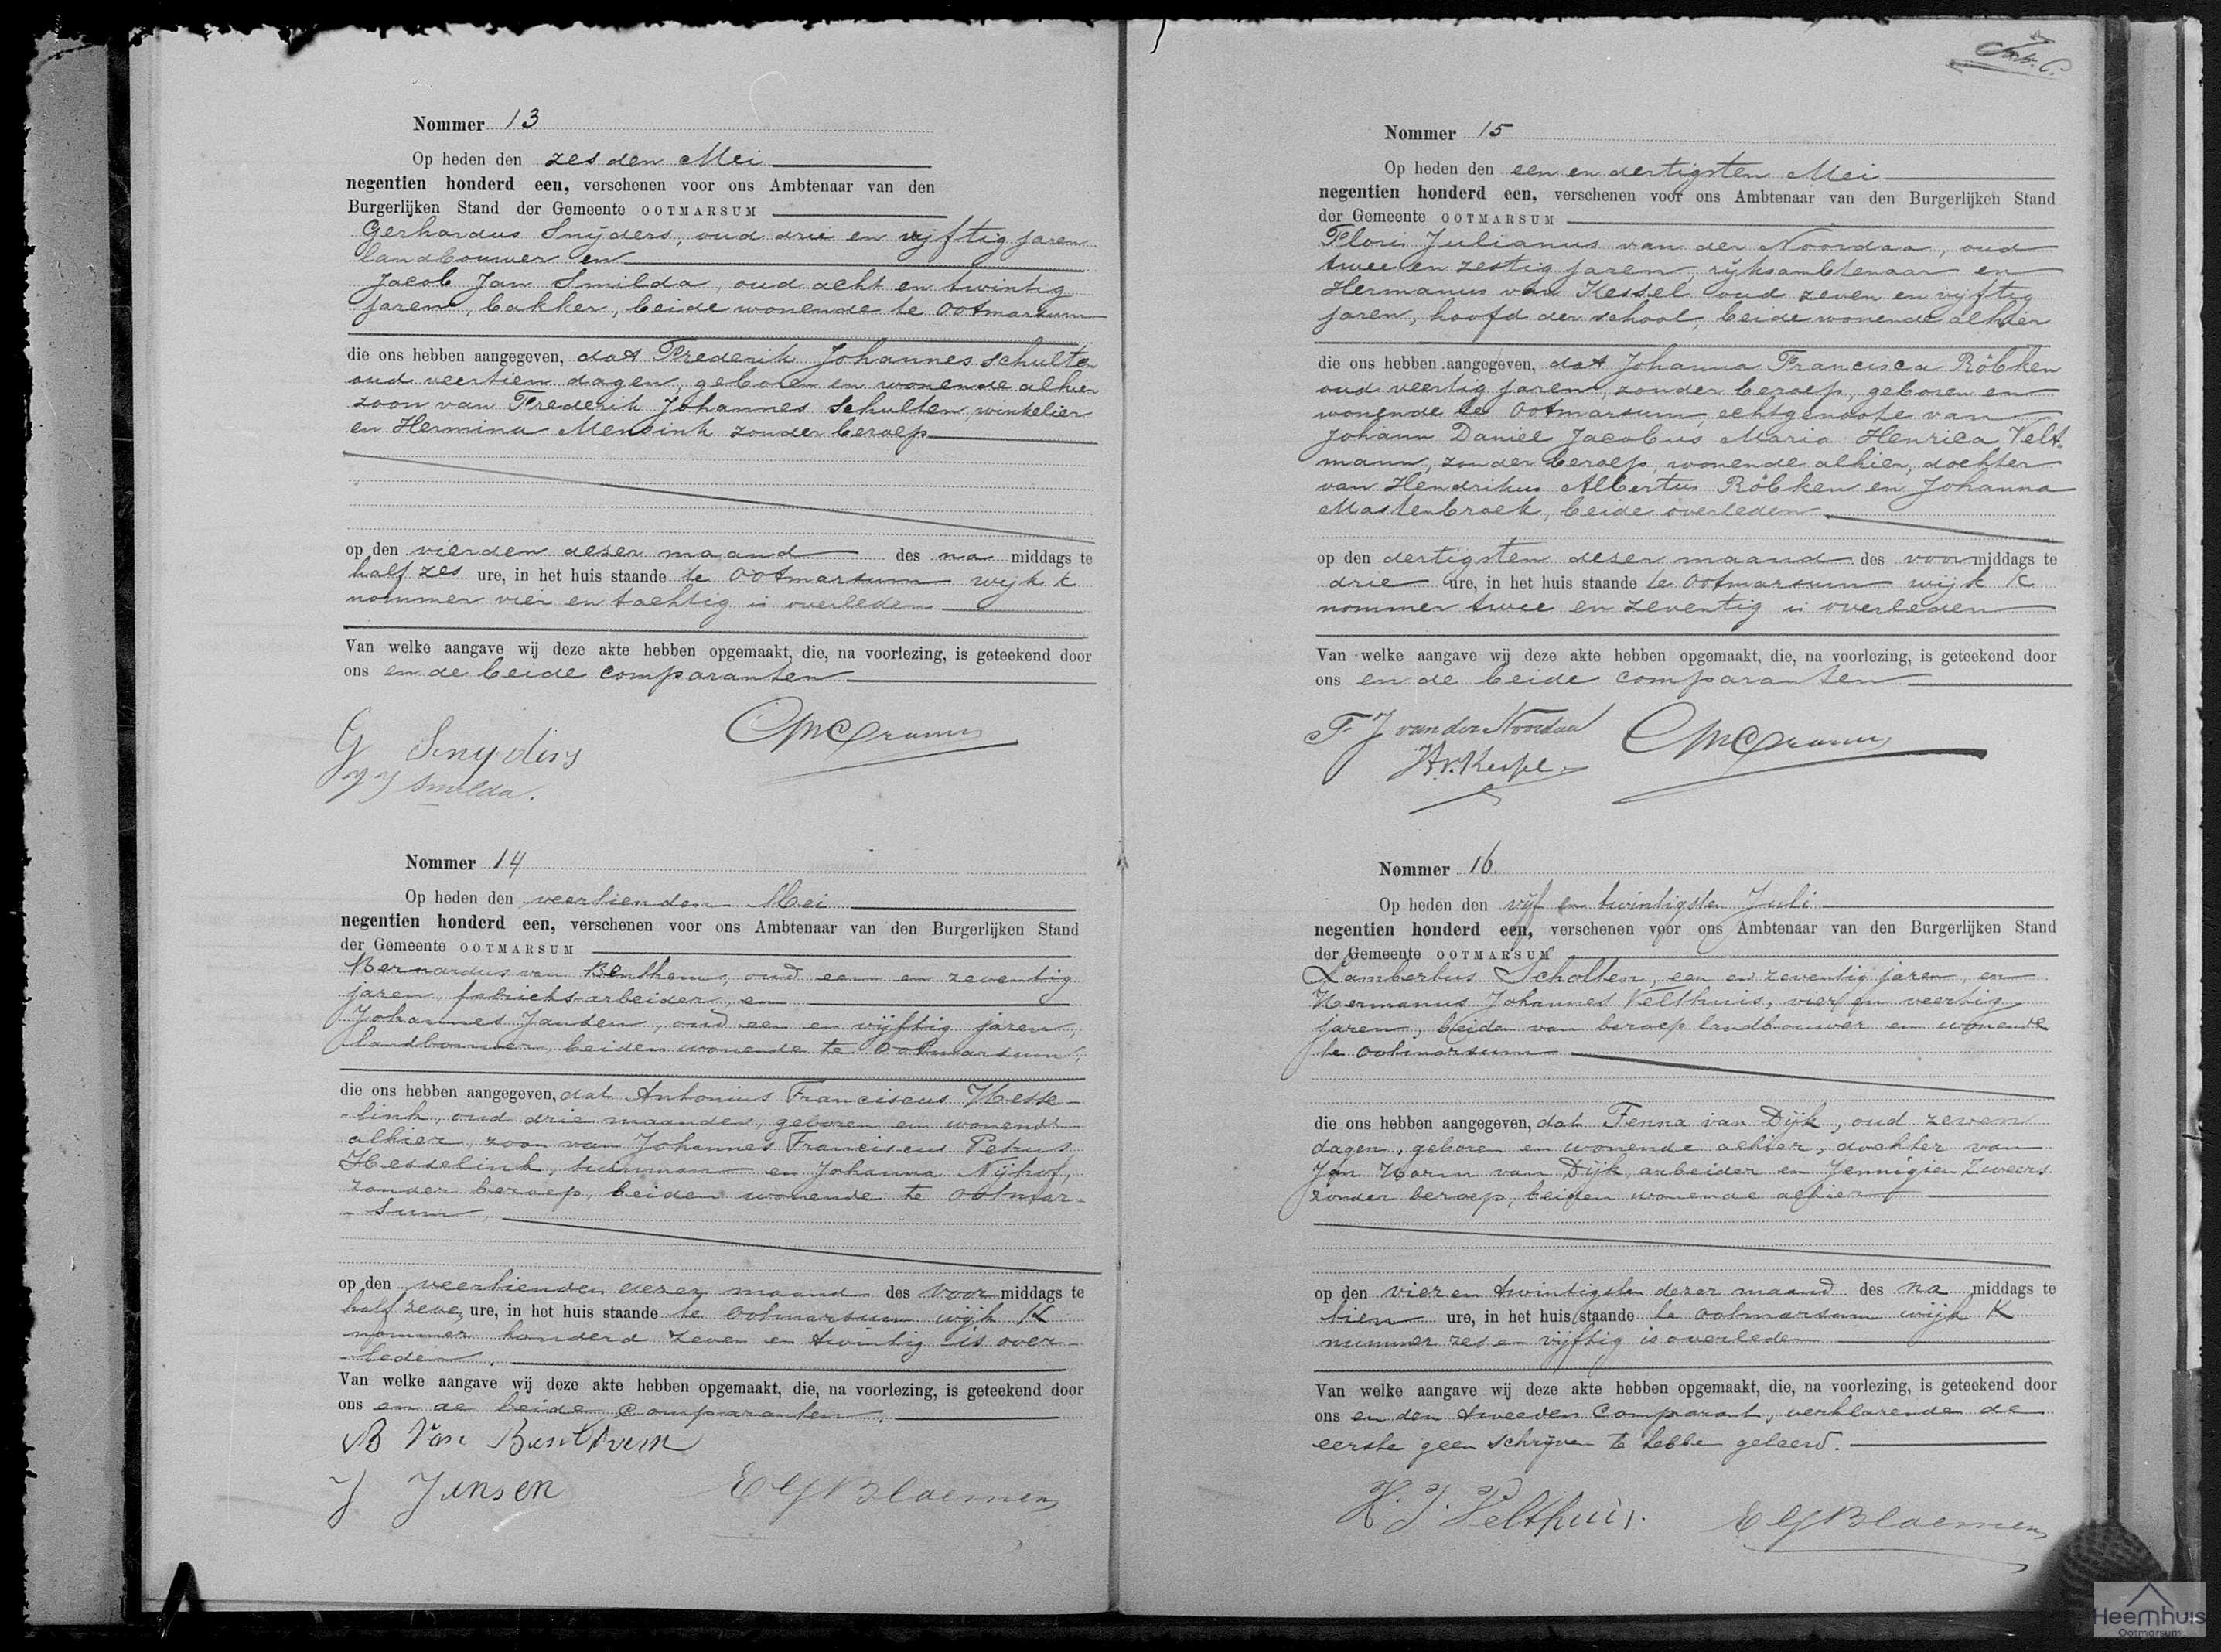 Nommer 13
Op heden den zesden Mei
negentien honderd een, verschenen voor ons Ambtenaar van den
Burgerlijken Stand der Gemeente OOTMARSUM
Gerhardus Snijders, oud drie en vijftig jaren
landbouwer en
Jacob Jan Smilda, oud acht en twintig
jaren, bakker, beide wonende te Ootmarsum
die ons hebben aangegeven, dat Frederik Johannes Schulten
oud veertien dagen, geboren en wonende alhier
zoon van Frederik Johannes Schulten, winkelier
en Hermina Mensink zonder beroep
op den vierden dezer maand des na middags te
half zes ure, in het huis staande te Ootmarsum wijk K
nommer vier en tachtig is overleden
Van welke aangave wij deze akte hebben opgemaakt, die, na voorlezing, is geteekend door
ons en de beide comparanten
G Snyders
J J Smilda.
Nommer 14
Op heden den veertienden Mei
negentien honderd een, verschenen voor ons Ambtenaar van den Burgerlijken Stand
der Gemeente OOTMARSUM
Bernardus van Benthem, oud een en zeventig
jaren, fabrieksarbeider, en
Johannes Jansen, oud een en vijftig jaren,
landbouwer, beiden wonende te Ootmarsum,
die ons hebben aangegeven, dat Antonius Franciscus Hesse-
-link, oud drie maanden, geboren en wonende
alhier, zoon van Johannes Franciscus Petrus
Hesselink, tuinman en Johanna Nijhof,
zonder beroep, beiden wonende te Ootmar-
-sum,
op den veertienden dezer maand des voor middags te
half zeven ure, in het huis staande te Ootmarsum wijk K
nommer honderd zeven en twintig is over-
-leden.
Van welke aangave wij deze akte hebben opgemaakt, die, na voorlezing, is geteekend door
ons en de beide comparanten.
B Van Benthem
J Jansen E G Bloemen
Nommer 15
Op heden den een en dertigsten Mei
negentien honderd een, verschenen voor ons Ambtenaar van den Burgerlijken Stand
der Gemeente OOTMARSUM
Floris Julianus van der Noordaa, oud
twee en zestig jaren, rijksambtenaar en
Hermanus van Kessel oud zeven en vijftig
jaren, hoofd der school, beide wonende alhier
die ons hebben aangegeven, dat Johanna Francisca Röbken
oud veertig jaren, zonder beroep, geboren en
wonende te Ootmarsum, echtgenoote van
Johann Daniel Jacobus Maria Henrica Velt-
mann, zonder beroep, wonende alhier, dochter
van Hendrikus Albertus Röbken en Johanna
Mastenbroek, beide overleden
op den dertigsten dezer maand des voor middags te
drie ure, in het huis staande te Ootmarsum wijk K
nommer twee en zeventig is overleden
Van welke aangave wij deze akte hebben opgemaakt, die, na voorlezing, is geteekend door
ons en de beide comparanten
F J van der Noordaa
H v. Kessel
Nommer 16.
Op heden den vijf en twintigsten Juli
negentien honderd een, verschenen voor ons Ambtenaar van den Burgerlijken Stand
der Gemeente OOTMARSUM
Lambertus Scholten, een en zeventig jaren, en
Hermannus Johannes Velthuis, vier en veertig
jaren, beiden van beroep landbouwer en wonende
te Ootmarsum
die ons hebben aangegeven, dat Fenna van Dijk, oud zeven
dagen, geboren en wonende alhier, dochter van
Jan Harm van Dijk, arbeider en Jennigien Zweers
zonder beroep, beiden wonende alhier
op den vier en twintigsten dezer maand des na middags te
tien ure, in het huis staande te Ootmarsum wijk K
nummer zes en vijftig is overleden
Van welke aangave wij deze akte hebben opgemaakt, die, na voorlezing, is geteekend door
ons en den tweeden Comparant, verklarende de
eerste geen schrijven te hebben geleerd.
H. J. Velthuis. E G Bloemen
Heemhuis
Ootmarsum